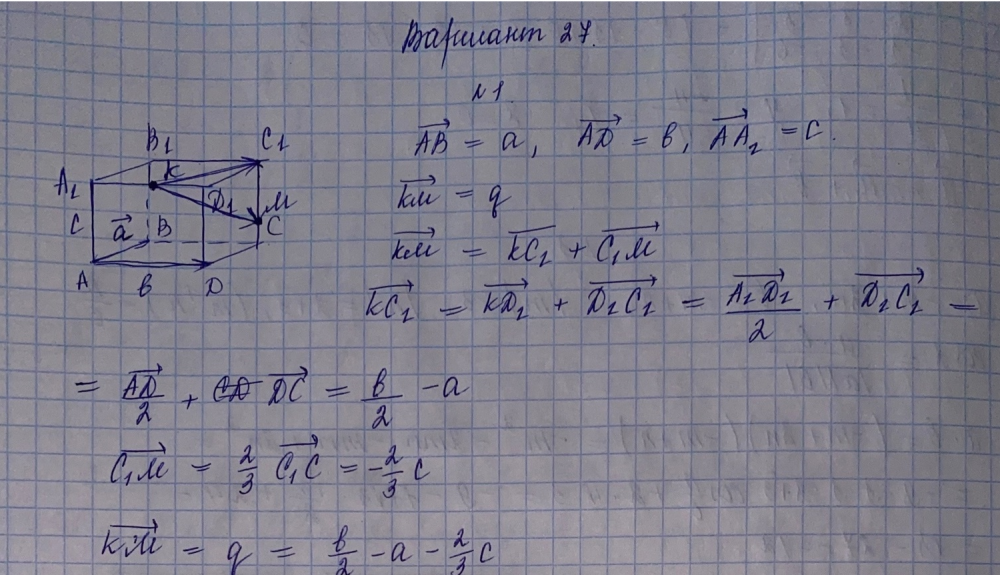 Вариант 27.
№1.
B₁ C₁
A₁ K D₁ M
C a⃗ B C
A в D
A͞B⃗ = a, A͞D⃗ = в, A͞A₁⃗ = c.
K͞M⃗ = q
K͞M⃗ = K͞C₁⃗ + C͞₁M⃗
K͞C₁⃗ = K͞D₁⃗ + D͞₁C₁⃗ = A͞₁D₁⃗/2 + D͞₁C₁⃗ =
= A͞D⃗/2 + D͞C⃗ = в/2 - a
C͞₁M⃗ = 2/3 C͞₁C⃗ = -2/3 c
K͞M⃗ = q = в/2 - a - 2/3 c